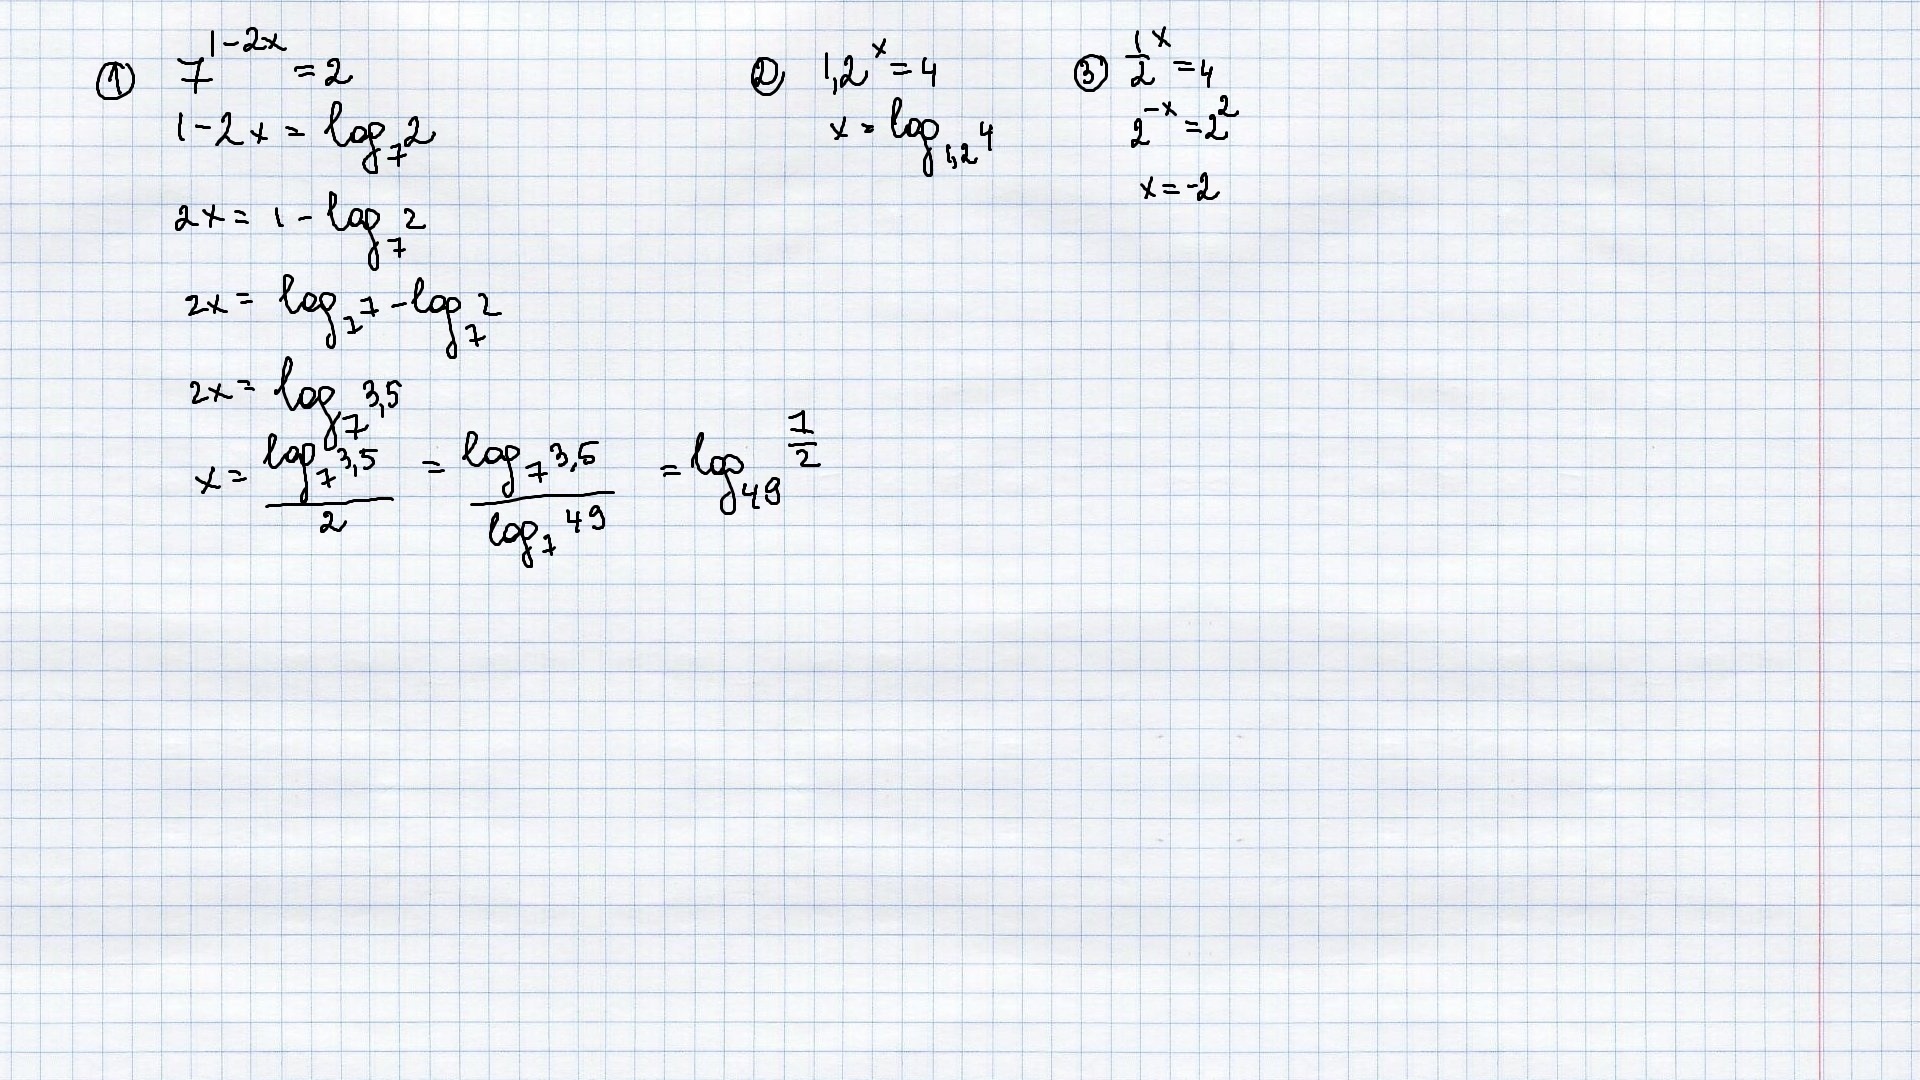 ① 7^(1-2x) = 2
1-2x = log₇2
2x = 1 - log₇2
2x = log₇7 - log₇2
2x = log₇3,5
x = log₇3,5 / 2 = log₇3,5 / log₇49 = log₄₉ 7/2
② 1,2^x = 4
x = log_1,2 4
③ 1/2^x = 4
2^-x = 2^2
x = -2